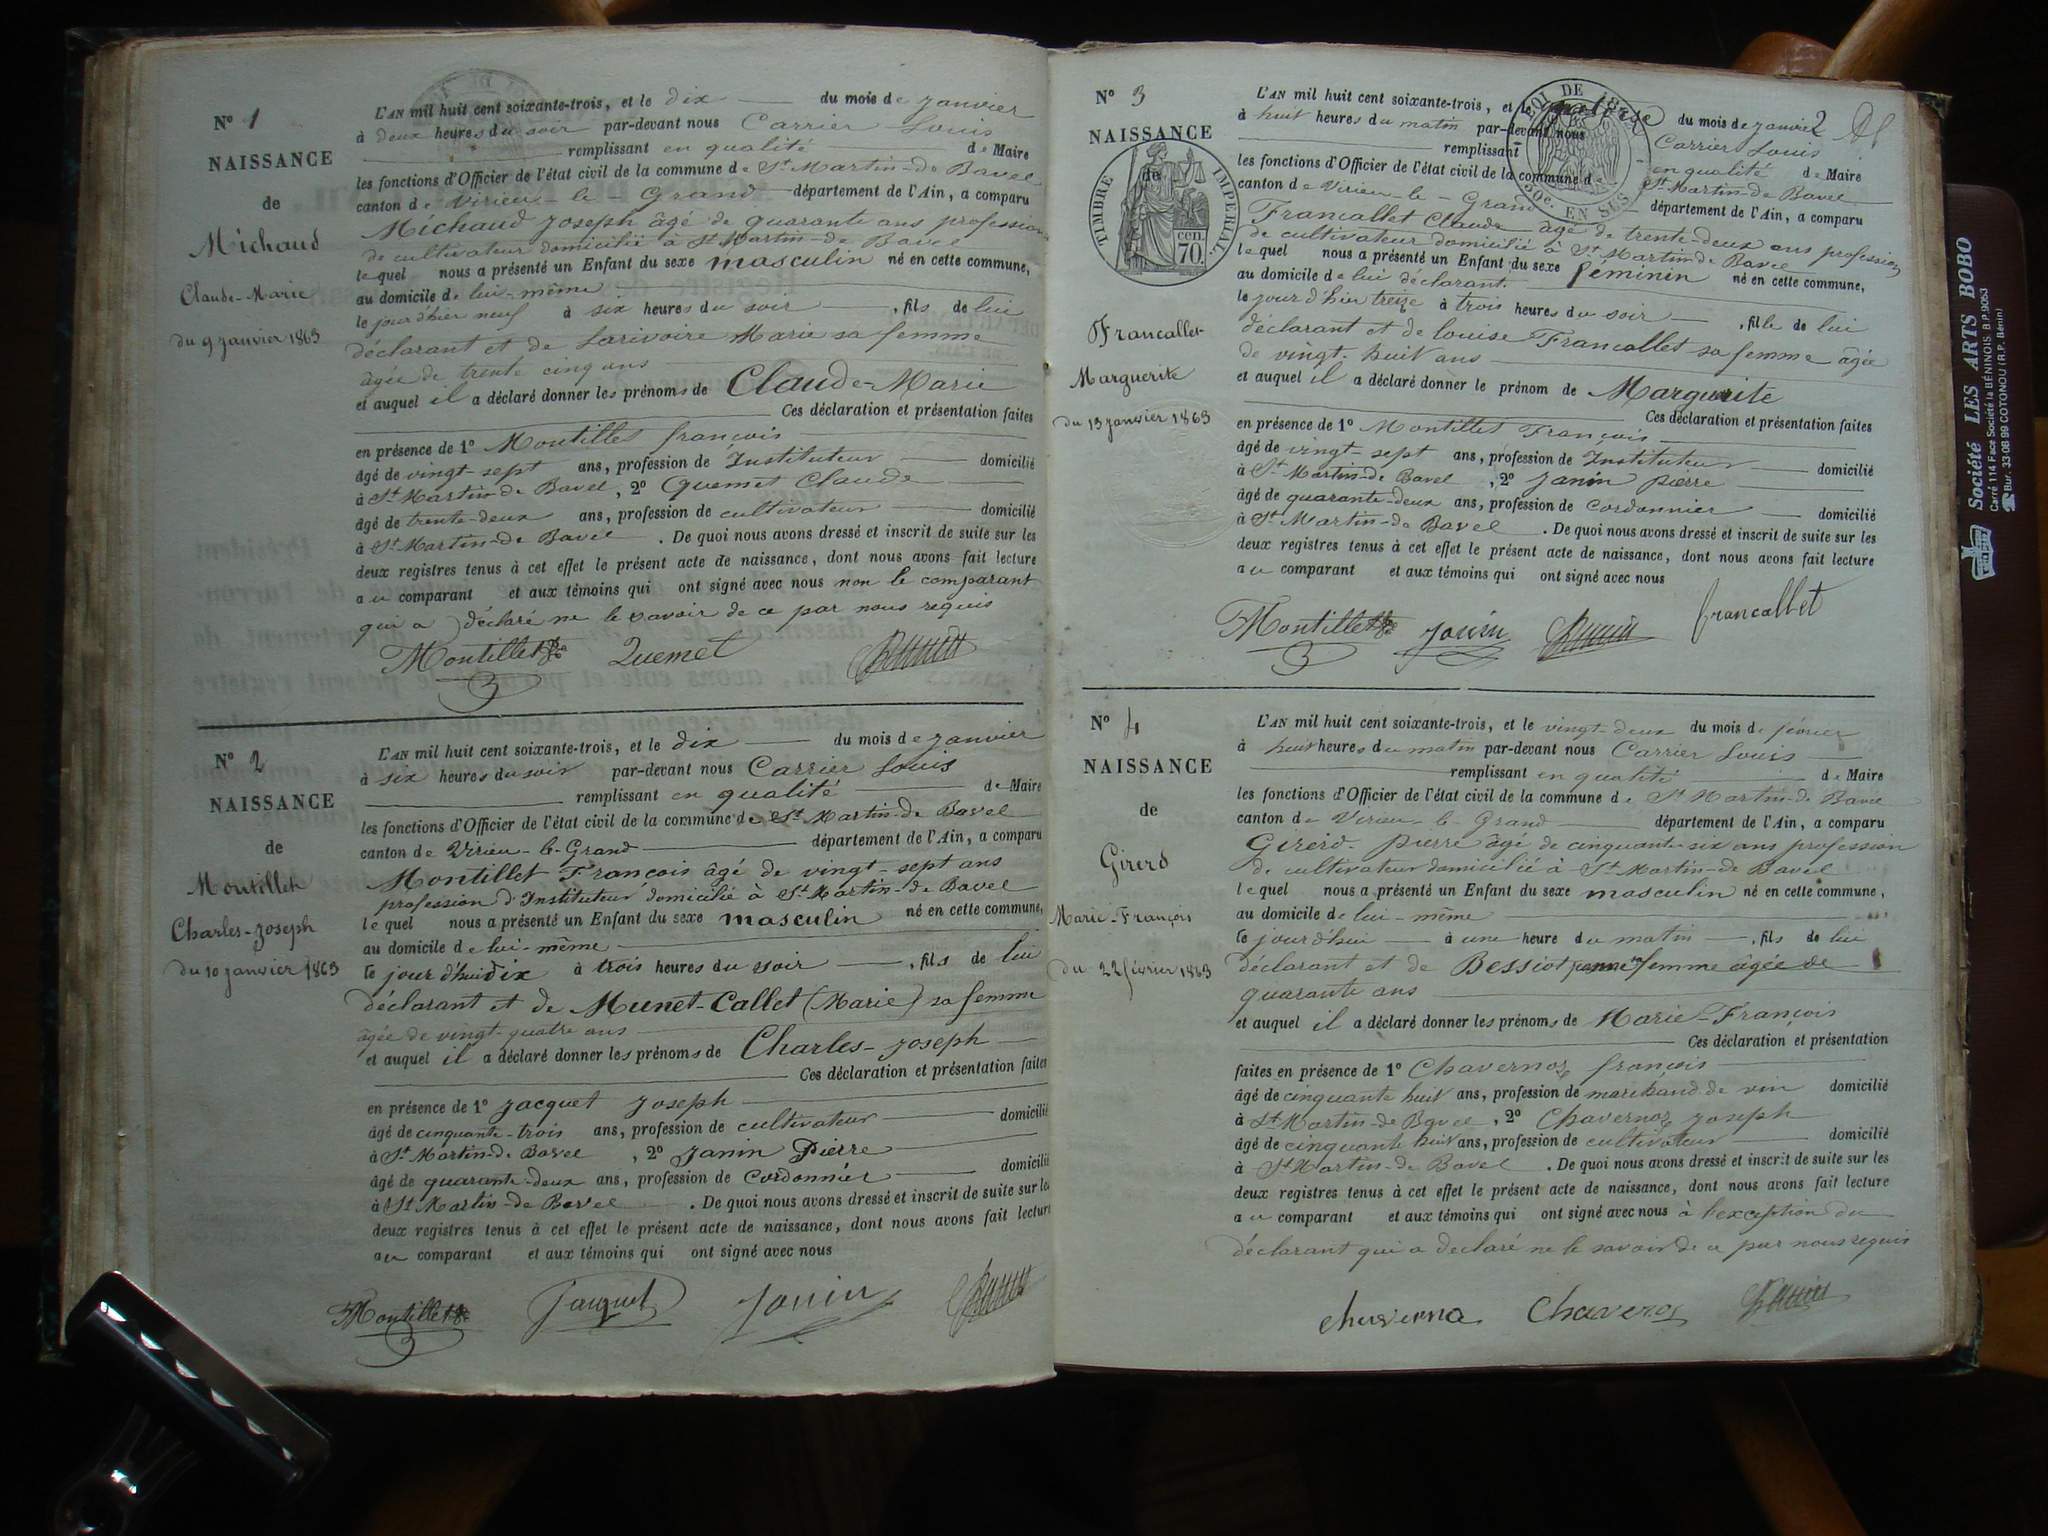 N° 1
NAISSANCE
de
Michaud
Claude-Marie
du 9 janvier 1863
L'AN mil huit cent soixante-trois, et le dix du mois de janvier
à deux heures du soir par-devant nous Carrier Louis
remplissant en qualité de Maire
les fonctions d'Officier de l'état civil de la commune de St Martin-de Bavel
canton de Virieu-le-Grand département de l'Ain, a comparu
Michaud Joseph âgé de quarante ans profession
de cultivateur domicilié à St Martin-de Bavel
lequel nous a présenté un Enfant du sexe masculin né en cette commune,
au domicile de lui-même
le jour d'hier neuf à six heures du soir, fils de lui
déclarant et de Larivoire Marie sa femme
âgée de trente cinq ans
et auquel il a déclaré donner les prénoms de Claude-Marie
Ces déclaration et présentation faites
en présence de 1° Montillet françois
âgé de vingt-sept ans, profession de Instituteur domicilié
à St Martin-de Bavel, 2° Quemet Claude
âgé de trente-deux ans, profession de cultivateur domicilié
à St Martin-de Bavel. De quoi nous avons dressé et inscrit de suite sur les
deux registres tenus à cet effet le présent acte de naissance, dont nous avons fait lecture
au comparant et aux témoins qui ont signé avec nous non le comparant
qui a déclaré ne le savoir de ce par nous requis
Montillet Quemet
N° 2
NAISSANCE
de
Montillet
Charles-Joseph
du 10 janvier 1863
L'AN mil huit cent soixante-trois, et le dix du mois de janvier
à six heures du soir par-devant nous Carrier Louis
remplissant en qualité de Maire
les fonctions d'Officier de l'état civil de la commune de St Martin-de Bavel
canton de Virieu-le-Grand département de l'Ain, a comparu
Montillet François âgé de vingt-sept ans
profession d'Instituteur domicilié à St Martin-de Bavel
lequel nous a présenté un Enfant du sexe masculin né en cette commune,
au domicile de lui-même
le jour d'hui dix à trois heures du soir, fils de lui
déclarant et de Munet-Callet (Marie) sa femme
âgée de vingt-quatre ans
et auquel il a déclaré donner les prénoms de Charles-Joseph
Ces déclaration et présentation faites
en présence de 1° Jacquet Joseph
âgé de cinquante-trois ans, profession de cultivateur domicilié
à St Martin-de Bavel, 2° Janin Pierre
âgé de quarante-deux ans, profession de Cordonnier domicilié
à St Martin-de Bavel. De quoi nous avons dressé et inscrit de suite sur les
deux registres tenus à cet effet le présent acte de naissance, dont nous avons fait lecture
au comparant et aux témoins qui ont signé avec nous
Montillet Jacquet Janin
2
N° 3
NAISSANCE
de
TIMBRE IMPERIAL
cen. 70.
LOI DE 18
50c. EN SUS
Francallet
Marguerite
du 13 janvier 1863
L'AN mil huit cent soixante-trois, et le quatorze du mois de janvier
à huit heures du matin par-devant nous Carrier Louis
remplissant en qualité de Maire
les fonctions d'Officier de l'état civil de la commune de St Martin-de Bavel
canton de Virieu-le-Grand département de l'Ain, a comparu
Francallet Claude âgé de trente-deux ans profession
de cultivateur domicilié à St Martin-de Bavel
lequel nous a présenté un Enfant du sexe féminin né en cette commune,
au domicile de lui déclarant
le jour d'hier treize à trois heures du soir, fille de lui
déclarant et de Louise Francallet sa femme âgée
de vingt-huit ans
et auquel il a déclaré donner le prénom de Marguerite
Ces déclaration et présentation faites
en présence de 1° Montillet François
âgé de vingt-sept ans, profession de Instituteur domicilié
à St Martin-de Bavel, 2° Janin Pierre
âgé de quarante-deux ans, profession de Cordonnier domicilié
à St Martin-de Bavel. De quoi nous avons dressé et inscrit de suite sur les
deux registres tenus à cet effet le présent acte de naissance, dont nous avons fait lecture
au comparant et aux témoins qui ont signé avec nous
Montillet Janin francallet
N° 4
NAISSANCE
de
Girerd
Marie-François
du 22 février 1863
L'AN mil huit cent soixante-trois, et le vingt-deux du mois de février
à huit heures du matin par-devant nous Carrier Louis
remplissant en qualité de Maire
les fonctions d'Officier de l'état civil de la commune de St Martin-de Bavel
canton de Virieu-le-Grand département de l'Ain, a comparu
Girerd Pierre âgé de cinquante-six ans profession
de cultivateur domicilié à St Martin-de Bavel
lequel nous a présenté un Enfant du sexe masculin né en cette commune,
au domicile de lui-même
le jour d'hui à une heure du matin, fils de lui
déclarant et de Bessiot femme âgée de
quarante ans
et auquel il a déclaré donner les prénoms de Marie-François
Ces déclaration et présentation
faites en présence de 1° Chavernoz françois
âgé de cinquante huit ans, profession de marchand de vin domicilié
à St Martin-de Bavel, 2° Chavernoz Joseph
âgé de cinquante huit ans, profession de cultivateur domicilié
à St Martin-de Bavel. De quoi nous avons dressé et inscrit de suite sur les
deux registres tenus à cet effet le présent acte de naissance, dont nous avons fait lecture
au comparant et aux témoins qui ont signé avec nous à l'exception du
déclarant qui a declaré ne le savoir de ce par nous requis
Société LES ARTS BOBO
Carré 114 Face Société la BÉNINOIS B.P. 9063
Bur. 33-06 99 COTONOU (R.P. Bénin)